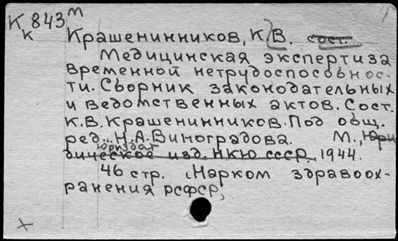 К 843 м
к
Крашенинников, К.В. сост.
Медицинская экспертиза
временной нетрудоспособнос-
ти. Сборник законодательных
и ведомственных актов. Сост.
К.В. Крашенинников. Под общ.
ред. Н.А. Виноградова. М., Юри
Юриздат
дическое изд. НКЮ СССР, 1944.
46 стр. (Нарком здравоох-
ранения РСФСР,